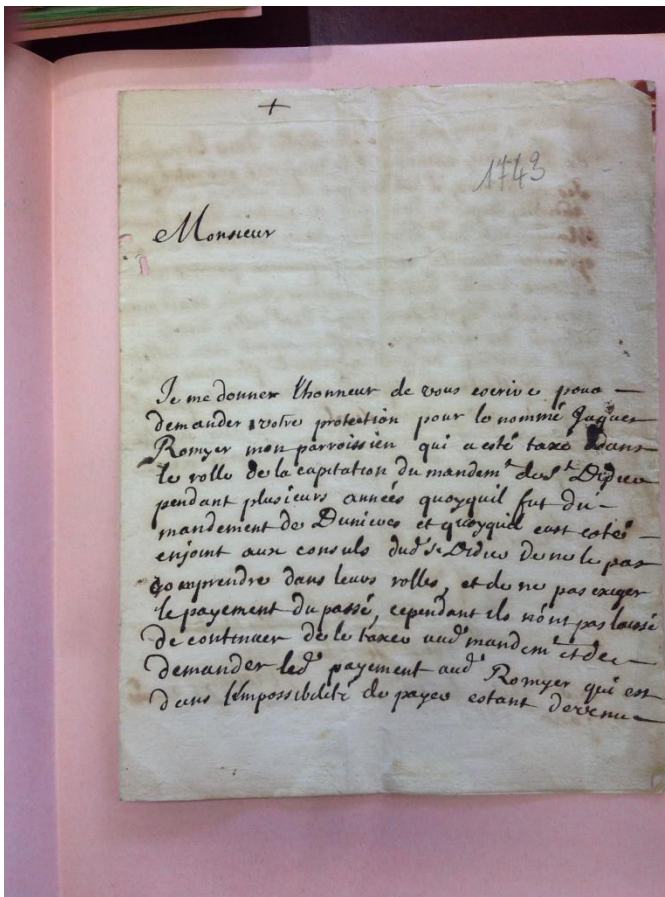 +
1743
Monsieur
Je me donner lhonneur de vous escrire pour
demander votre protection pour le nommé Jaques
Romyer mon parroissien qui a esté taxé dans
le rolle de la capitation du mandemt de St Didier
pendant plusieurs années quoyquil fut du
mandement de Dunieres et quoyquil eust esté
enjoint aux consuls dud St Didier de ne le pas
comprendre dans leurs rolles, et de ne pas exiger
le payement du passé, cependant ils n'ont pas laissé
de continuer de le taxer aud mandemt et de
demander led payement aud Romyer qui est
dans l'impossibilité de payer estant devenu